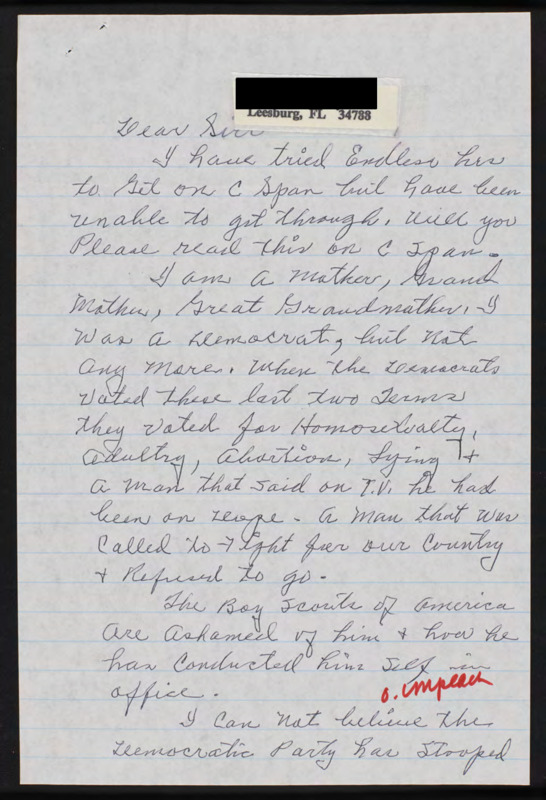 Leesburg, FL 34788
Dear Sirr
I have tried Endless hrs
to Git on C Span but have been
unable to git through. Will you
Please read this on C Span.
I am a Mother, Grand
Mother, Great Grandmother. I
was a Democrat, but not
any more. When the Democrats
Voted these last two Terms
they voted for Homosexualty,
adultry, abortion, Lying +
a man that said on T.V. he had
been on Dope - a man that was
Called to Fight for our Country
+ Refused to go.
The Boy Scouts of America
are ashamed of him + how he
has Conducted him self in
office.
o. impeach
I Can not believe the
Democratic Party has Stooped